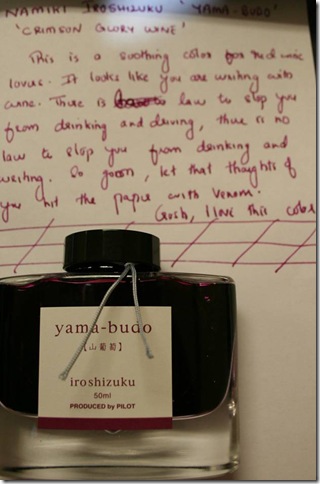 NAMIKI IROSHIZUKU 'YAMA-BUDO'
'CRIMSON GLORY WINE'
This is a soothing color for red wine
lovers. It looks like you are writing with
wine. There is law to stop you
from drinking and driving, there is no
law to stop you from drinking and
writing. So goon, let that thoughts of
you hit the paper with venom.
Gosh, I love this color
yama-budo
【山葡萄】
iroshizuku
50ml
PRODUCED by PILOT